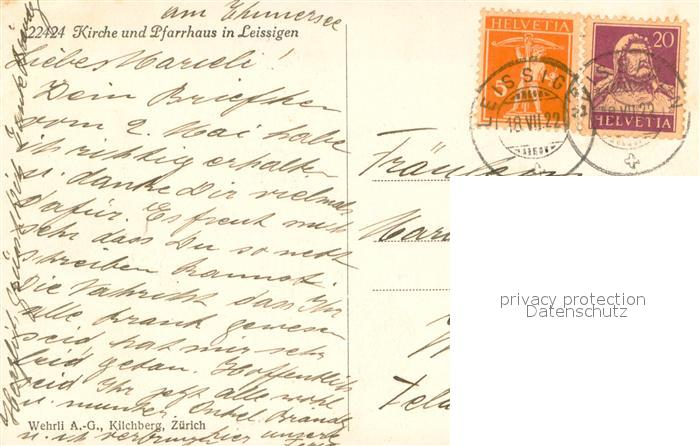 am Thunersee
22424 Kirche und Pfarrhaus in Leissigen
Liebes Marieli!
Dein Briefchen
vom 2. Mai habe
ich richtig erhalten
u. danke Dir vielmals
dafür. Es freut mich
sehr dass Du so nett
schreiben kannst.
Die Nachricht dass Ihr
alle krank gewesen
seid hat mir sehr
leid getan. Hoffentlich
seid Ihr jetzt alle wohl
u. munter. Onkel
u. ich verbringen unsere
Wehrli A.-G., Kilchberg, Zürich
HELVETIA
5
20
HELVETIA
LEISSIGEN
18.VII.22
Fräulein
privacy protection
Datenschutz